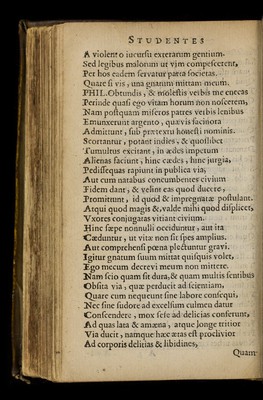 STUDENTES
A violento iucursu exterarum gentium.
Sed legibus malorum ut vim compescerent,
Per hos eadem servatur patria societas.
Quare si vis, una gnatum mittam meum.
PHIL. Obtundis, & molestis verbis me enecas
Perinde quasi ego vitam horum non noscerem,
Nam postquam miseros patres verbis lenibus
Emunxerunt argento, quævis facinora
Admittunt, sub prætextu honesti nominis.
Scortantur, potant indies, & quoslibet
Tumultus excitant, in ædes impetum
Alienas faciunt, hinc cædes, hinc jurgia,
Pedissequas rapiunt in publica via,
Aut cum natabus concumbentes civium
Fidem dant, & velint eas quod ducere,
Promittunt, id quod & impregnatæ postulant.
Atqui quod magis &, valde mihi quod displicet,
Vxores conjugatas vitiant civium.
Hinc sæpe nonnulli occiduntur, aut ita
Cæduntur, ut vitæ non sit spes amplius.
Aut comprehensi pœna plectuntur gravi.
Igitur gnatum suum mittat quisquis volet,
Ego mecum decrevi meum non mittere.
Nam scio quam sit dura, & quam multis sentibus
Obsita via, quæ perducit ad scientiam,
Quare cum nequeunt sine labore consequi,
Nec sine sudore ad excelsum culmen datur
Conscendere, mox sese ad delicias conferunt,
Ad quas lata & amæna, atque longe tritior
Via ducit, namque hæc ætas est proclivior
Ad corporis delicias & libidines,
Quam-